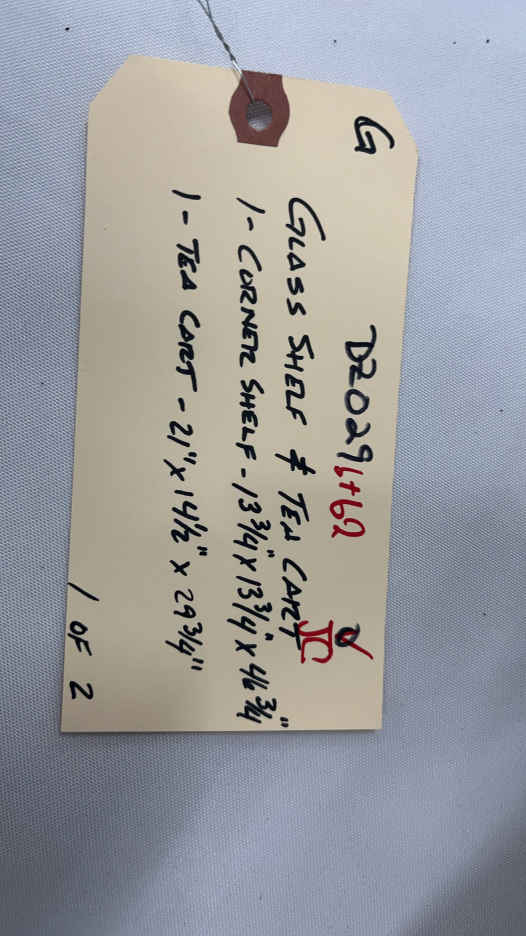 G
DZ029 6+62
GLASS SHELF & TEA CART
JC
1 - CORNER SHELF - 13 3/4" x 13 3/4" x 46 3/4"
1 - TEA CART - 21" x 14 1/2" x 29 3/4"
1 OF 2